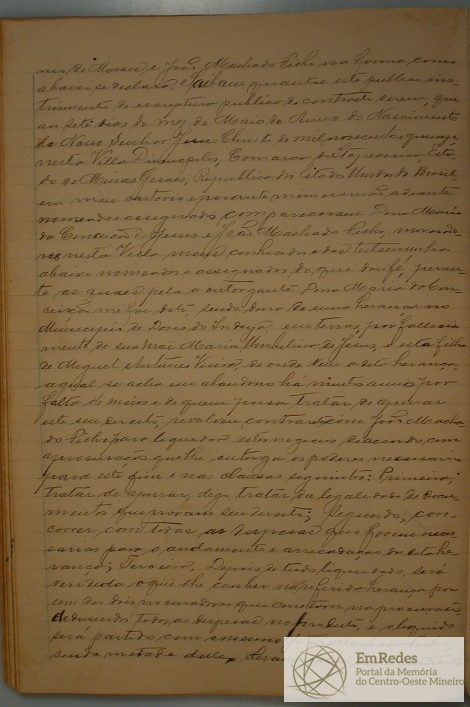 de Moraes e João Machado Filho na forma como
abaixo se declara. Saibam quantos este publico ins-
trumento de escriptura publica de contracto virem, que
aos sete dias do mez de Maio do Anno do Nascimento
de Nosso Senhor Jesus Christo de mil novecentos e quinze
nesta Villa Divinopolis, Comarca desta, Esta-
do de Minas Geraes, Republica dos Estados Unidos do Brasil,
em meu cartorio e perante mim escrivão, adeante
nomeado e assignado compareceram Dona Maria
da Conceição de Jesus e João Machado Filho, morado-
res nesta Villa meus conhecidos e das testemunhas
abaixo nomeadas e assignadas do que dou fé, peran-
te as quaes pela a outorgante Dona Maria da Con-
ceição me foi dito, sendo dona de uma herança no
Municipio de Dores do Indayá, em terras, por falleci-
mento de sua Mai Maria de Jesus, e esta filha
de Miguel Antunes Vieira de onde vem a dita herança,
a qual se acha em abandono ha muitos annos por
falta de meios e de quem possa tratar de apurar
este seu direito, resolveu contractar com João Macha-
do Filho para liquidar estes negocios de accordo com
a procuração que lhe outorga os poderes necessarios
para este fim e nas clausas seguintes: Primeiro;
tratar de apurar, digo, tratar da legalidade de docu-
mentos que provam seu direito; Segundo; con-
correr com todas as despesas que forem neces-
sarias para o andamento e arrecadação da dita he-
rança; Terceiro. Depois de tudo liquidado, será
vendida o que lhe couber na referida herança por
um dos dois procuradores que constam na procuração,
deduzindo todas as despesas no producto, e o liquido
será partido com o mesmo João Machado Filho,
sendo metade delle,
EmRedes
Portal da Memória
do Centro-Oeste Mineiro